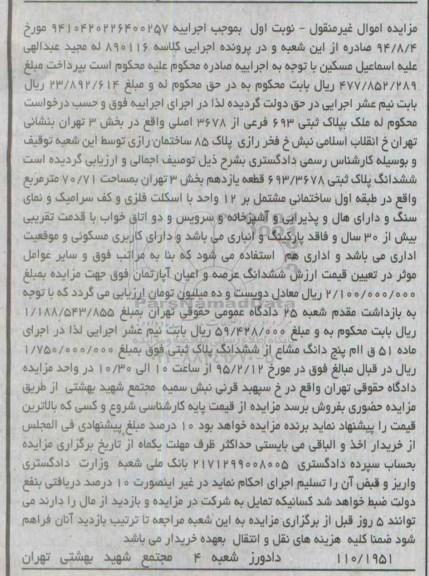 مزایده اموال غیرمنقول - نوبت اول  بموجب اجراییه ۹۴۱۰۴۲۰۲۲۶۴۰۰۲۵۷ مورخ
۹۴/۸/۴ صادره از این شعبه و در پرونده اجرایی کلاسه ۸۹۰۱۱۶ له مجید عبدالهی
علیه اسماعیل مسکین با توجه به اجراییه صادره محکوم علیه محکوم است بپرداخت مبلغ
۴۷۷/۸۵۲/۲۸۹ ریال بابت محکوم به در حق محکوم له و مبلغ ۲۳/۸۹۲/۶۱۴ ریال
بابت نیم عشر اجرایی در حق دولت گردیده لذا در اجرای اجراییه فوق و حسب درخواست
محکوم له ملک بپلاک ثبتی ۶۹۳ فرعی از ۳۶۷۸ اصلی واقع در بخش ۳ تهران بنشانی
تهران خ انقلاب اسلامی نبش خ فخر رازی  پلاک ۸۵ ساختمان رازی توسط این شعبه توقیف
و بوسیله کارشناس رسمی دادگستری بشرح ذیل توصیف اجمالی و ارزیابی گردیده است
ششدانگ پلاک ثبتی ۶۹۳/۳۶۷۸ قطعه یازدهم بخش ۳ تهران بمساحت ۷۰/۷۱ مترمربع
واقع در طبقه اول ساختمانی مشتمل بر ۱۲ واحد با اسکلت فلزی و کف سرامیک و نمای
سنگ و دارای هال و پذیرایی و آشپزخانه و سرویس و دو اتاق خواب با قدمت تقریبی
بیش از ۳۰ سال و فاقد پارکینگ و انباری می باشد و دارای کاربری مسکونی و موقعیت
اداری می باشد و اداری هم  استفاده می شود که بنا به مراتب فوق و سایر عوامل
موثر در تعیین قیمت ارزش ششدانگ عرصه و اعیان آپارتمان فوق جهت مزایده بمبلغ
۲/۱۰۰/۰۰۰/۰۰۰ ریال معادل دویست و ده میلیون تومان ارزیابی می گردد که با توجه
به بازداشت مقدم شعبه ۲۵ دادگاه عمومی حقوقی تهران بمبلغ ۱/۱۸۸/۵۴۳/۸۵۵
ریال بابت محکوم به و مبلغ ۵۹/۴۲۸/۰۰۰ ریال بابت نیم عشر اجرایی لذا در اجرای
ماده ۵۱ ق اام پنج دانگ مشاع از ششدانگ پلاک ثبتی فوق بمبلغ ۱/۷۵۰/۰۰۰/۰۰۰
ریال در قبال مبالغ فوق در مورخ ۹۵/۲/۱۲ از ساعت ۱۰ الی ۱۰/۳۰ در واحد مزایده
دادگاه حقوقی تهران واقع در خ سپهبد قرنی نبش سمیه  مجتمع شهید بهشتی  از طریق
مزایده حضوری بفروش برسد مزایده از قیمت پایه کارشناسی شروع و کسی که بالاترین
قیمت را پیشنهاد نماید برنده مزایده خواهد بود ۱۰ درصد مبلغ پیشنهادی فی المجلس
از خریدار اخذ و الباقی می بایستی حداکثر ظرف مهلت یکماه از تاریخ برگزاری مزایده
بحساب سپرده دادگستری ۲۱۷۱۲۹۹۰۰۸۰۰۵ بانک ملی شعبه  وزارت  دادگستری
واریز و قبض آن را تسلیم اجرای احکام نماید در غیر اینصورت ۱۰ درصد دریافتی بنفع
دولت ضبط خواهد شد کسانیکه تمایل به شرکت در مزایده و بازدید از مال را دارند می
توانند ۵ روز قبل از برگزاری مزایده به این شعبه مراجعه تا ترتیب بازدید آنان فراهم
شود ضمنا کلیه  هزینه های نقل و انتقال  بعهده خریدار می باشد
۱۱۰/۱۹۵۱  دادورز  شعبه  ۴  مجتمع  شهید  بهشتی  تهران